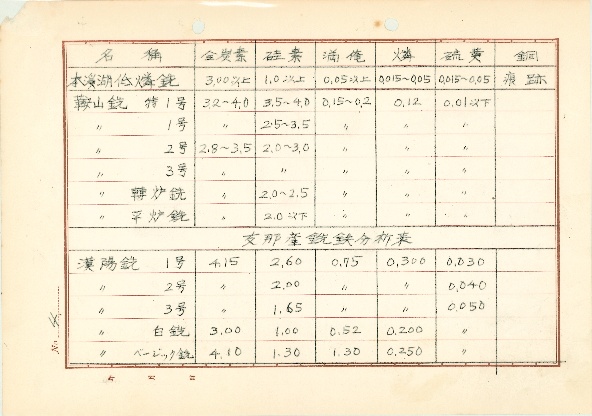 名稱 全炭素 硅素 満俺 燐 硫黄 銅
本溪湖低燐銑 3,00以上 1.0以上 0,05以上 0,015~0,05 0,015~0,05 痕跡
鞍山銑 特1号 3.2~4.0 3,5~4,0 0,15~0,2 0,12 0,01以下
〃 1号 〃 2.5~3,5 〃 〃 〃
〃 2号 2.8~3,5 2.0~3,0 〃 〃 〃
〃 3号 〃 〃 〃 〃 〃
〃 轉炉銑 〃 2.0~2.5 〃 〃 〃
〃 平炉銑 〃 2.0以下 〃 〃 〃
支那産銑鉄分析表
漢陽銑 1号 4.15 2,60 0,75 0,300 0,030
〃 2号 〃 2.00 〃 〃 0,040
〃 3号 〃 1,65 〃 〃 0,050
〃 白銑 3,00 1,00 0,52 0,200 〃
〃 ベージック銑 4.10 1.30 1.30 0,250 〃
No.